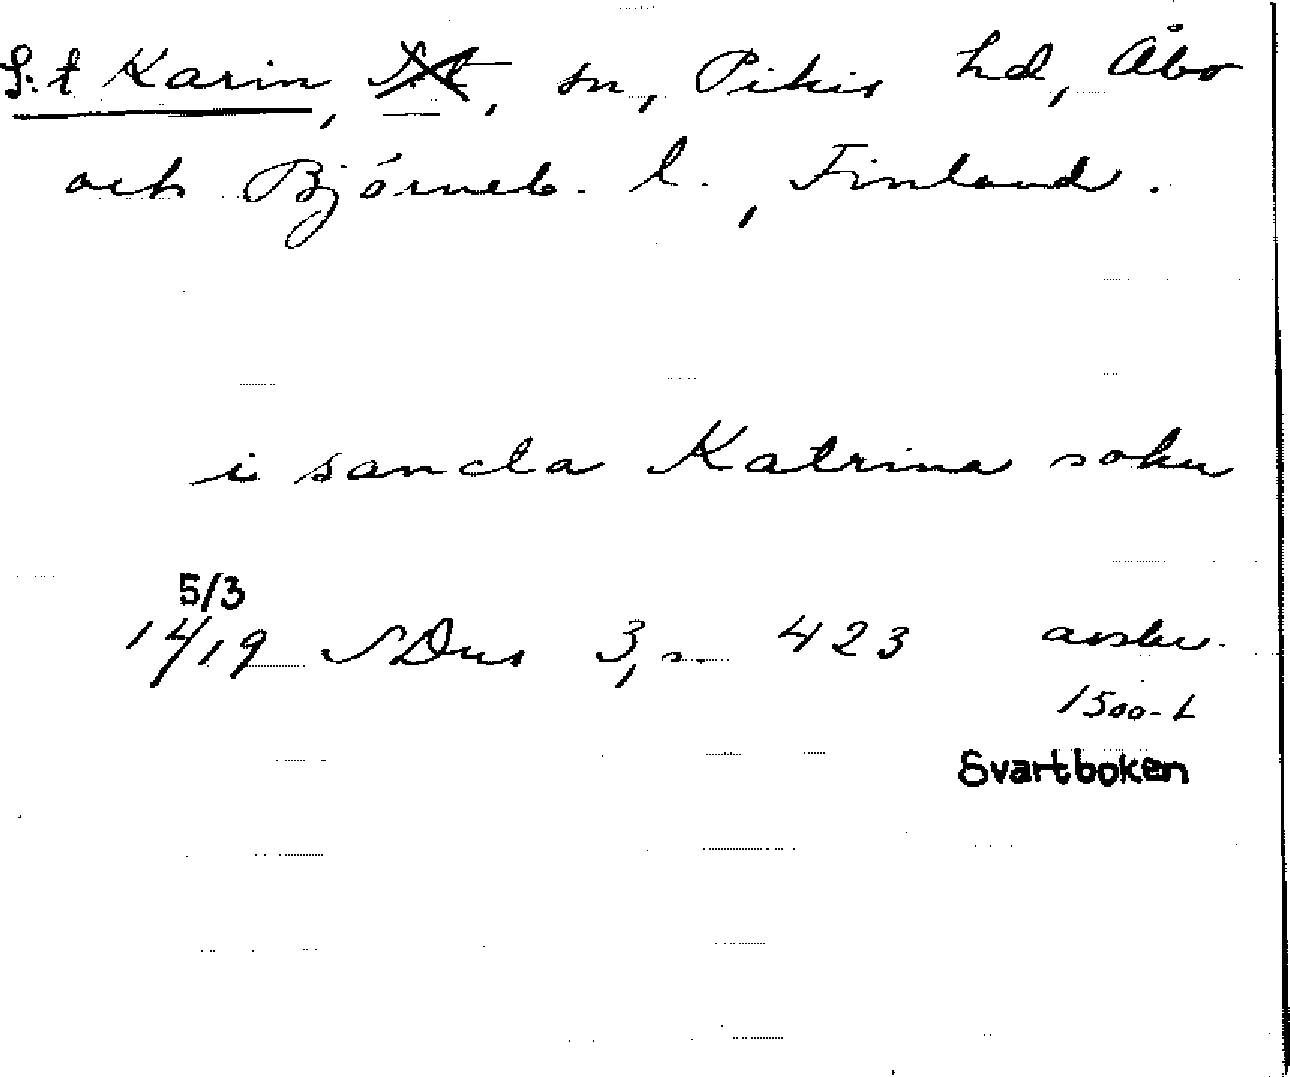 S:t Karin, S:t, sn, Pikis hd, Åbo
och Björneb. l., Finland.
i sancta Katrina sokn
5/3
14/19 SDns 3, s. 423 avskr.
1500-t
Svartboken